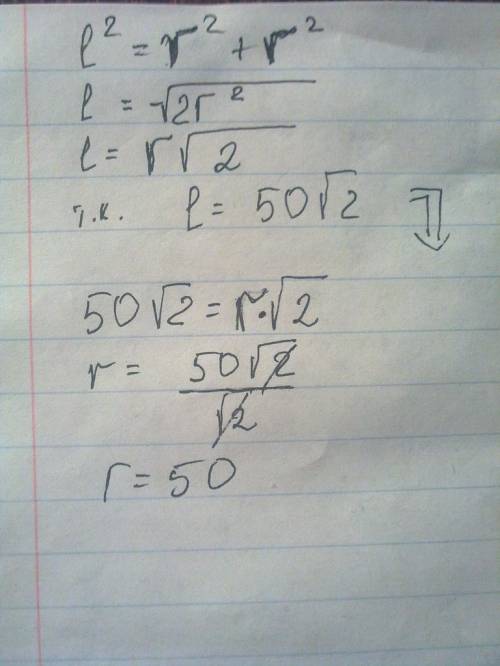 ℓ² = r² + r²
ℓ = √2r²
ℓ = r√2
т.к. ℓ = 50√2
50√2 = r·√2
r = 50√2/√2
r = 50